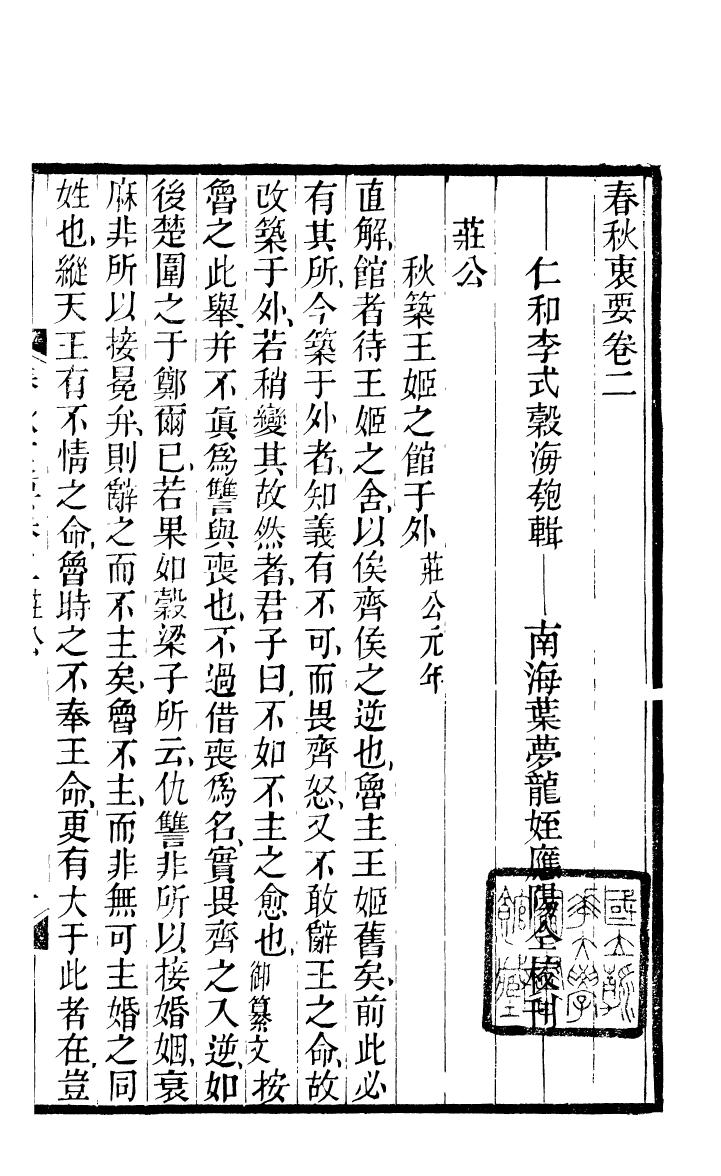 春秋衷要卷二
仁和李式穀海匏輯 南海葉夢龍姪應陽仝校刊
莊公
秋築王姬之館于外莊公元年
直解、館者待王姬之舍、以俟齊侯之逆也、魯主王姬舊矣、前此必
有其所、今築于外者、知義有不可、而畏齊怒、又不敢辭王之命、故
改築于外、若稍變其故然者、君子曰、不如不主之愈也、御纂文 按
魯之此舉、幷不眞爲讐與喪也、不過借喪爲名、實畏齊之入逆、如
後楚圍之于鄭爾、已若果如穀梁子所云、仇讐非所以接婚姻、衰
麻非所以接冕弁、則辭之而不主矣、魯不主、而非無可主婚之同
姓也、縱天王有不情之命、魯時之不奉王命、更有大于此者在、豈
國立
華大學
館藏